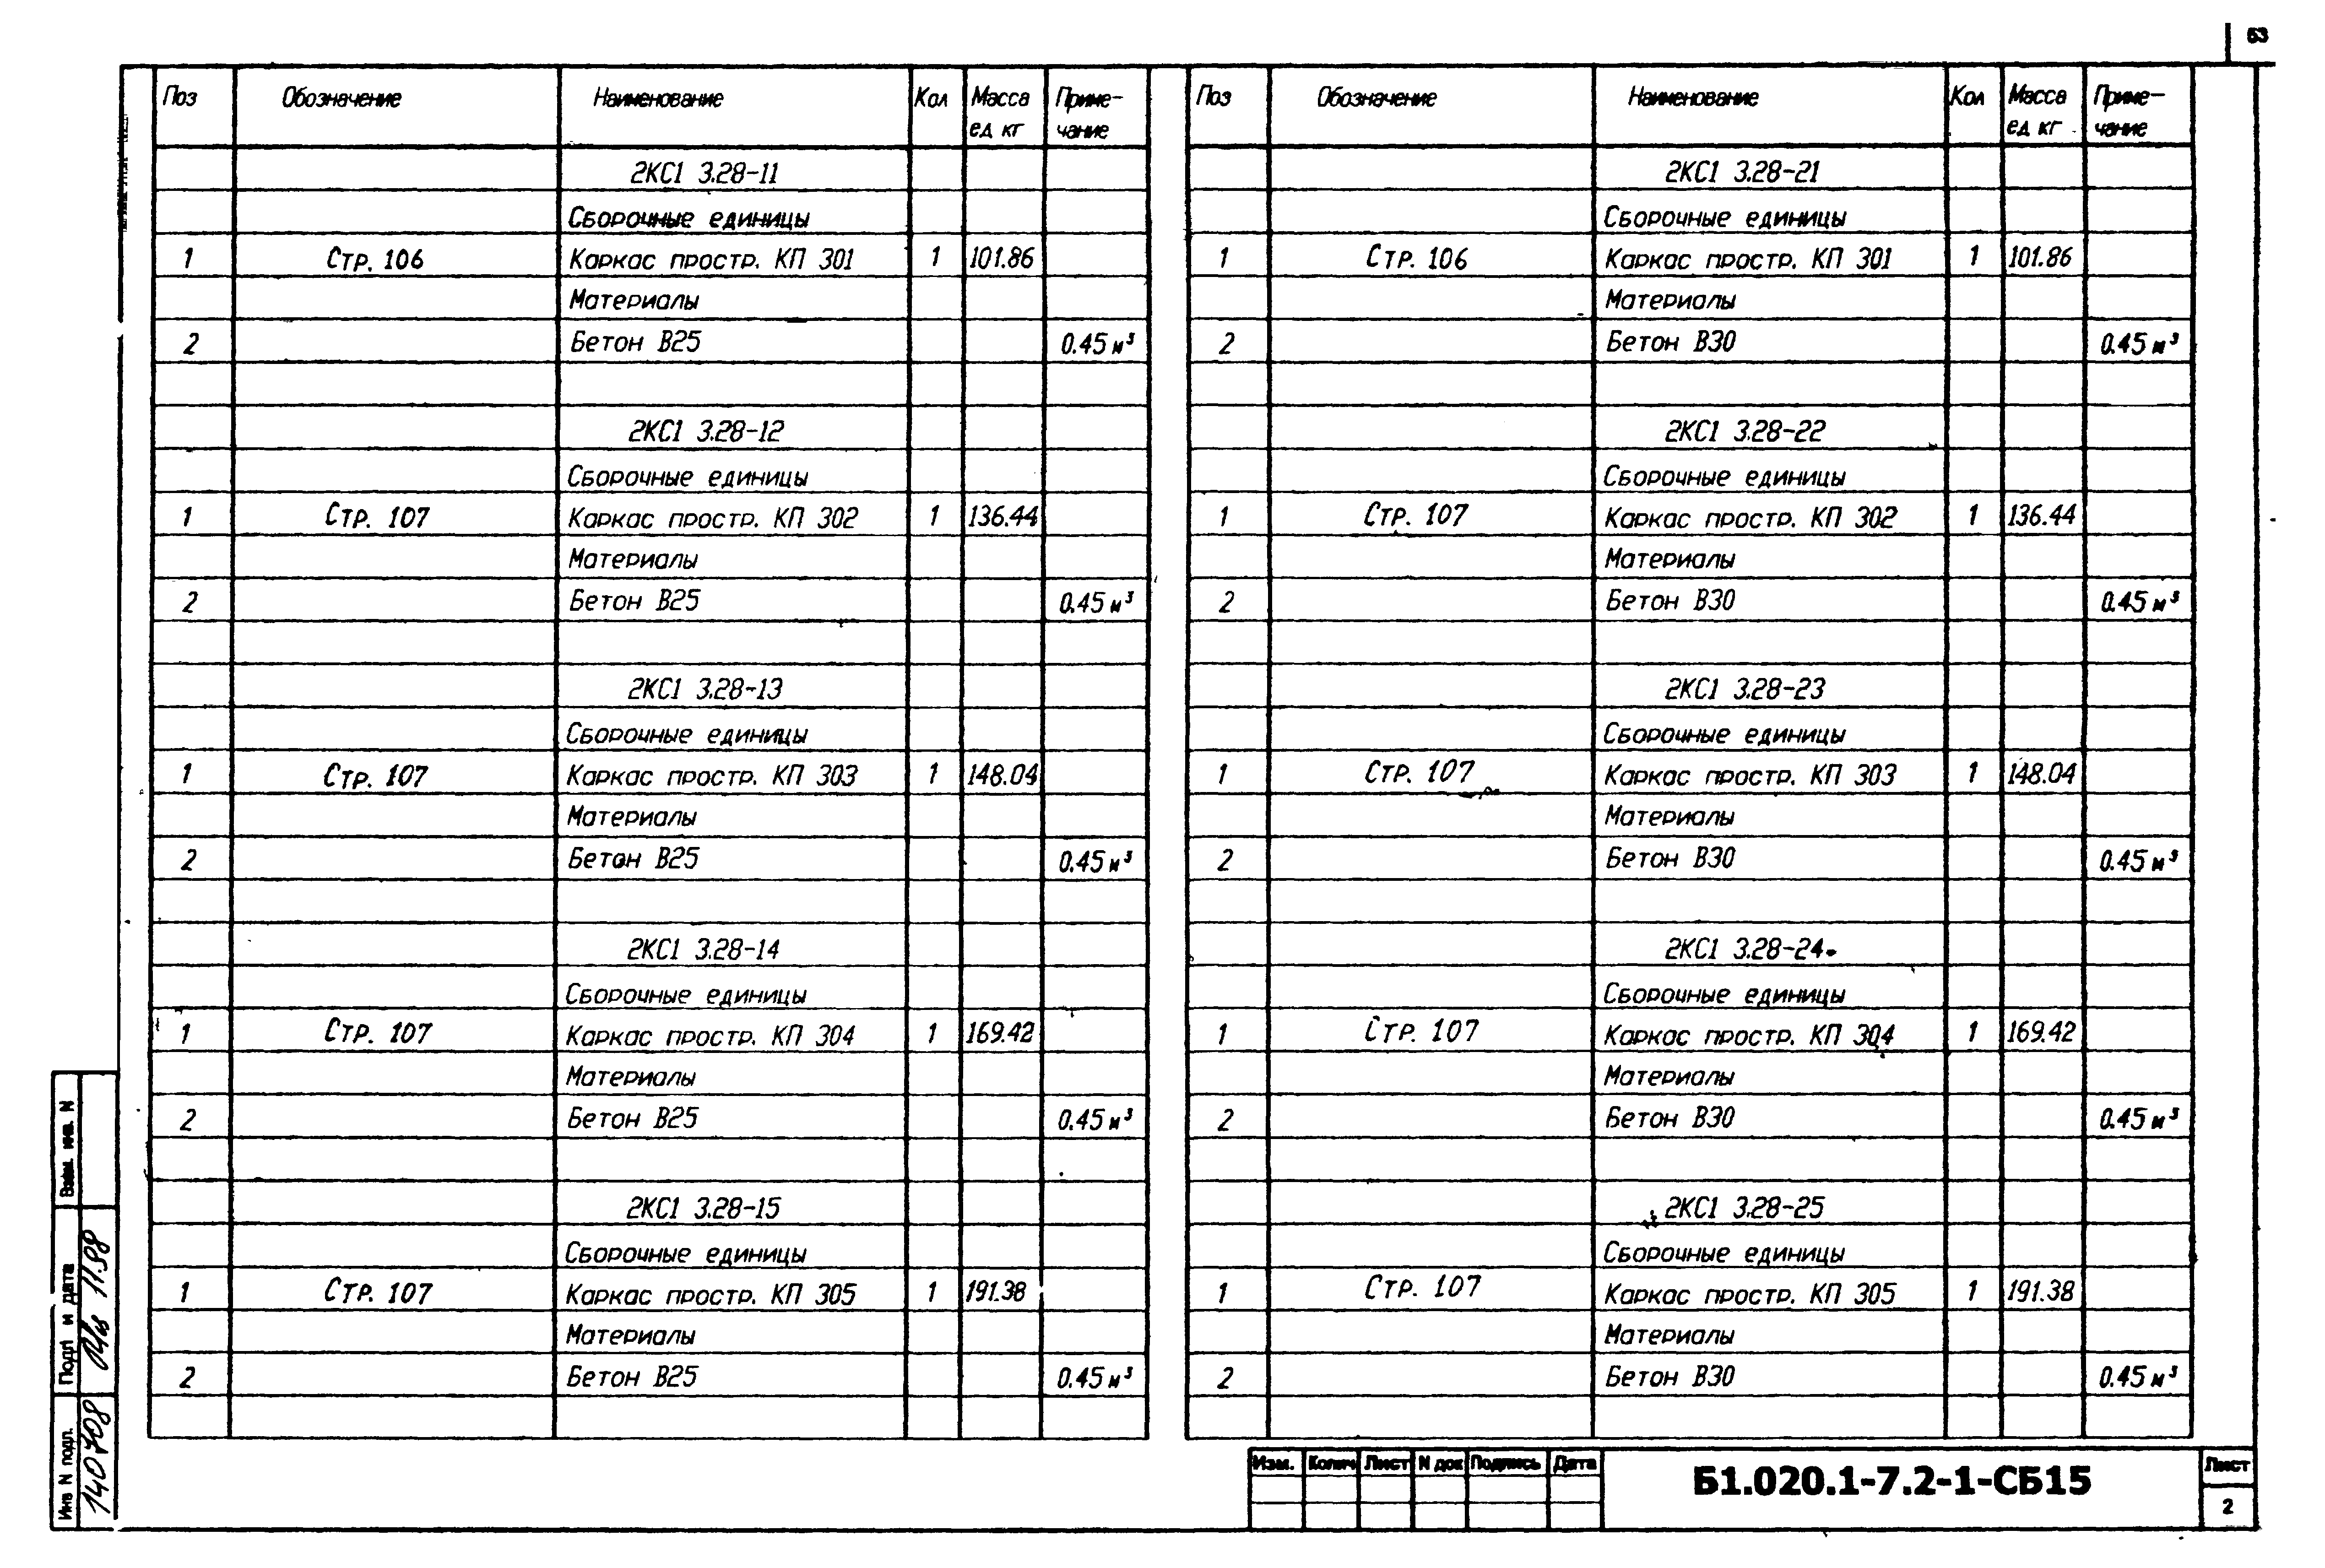 53
Поз Обозначение Наименование Кол Масса ед кг Приме-чание
2КС1 3.28-11
Сборочные единицы
1 Стр. 106 Каркас простр. КП 301 1 101.86
Материалы
2 Бетон В25 0.45 м³
2КС1 3.28-12
Сборочные единицы
1 Стр. 107 Каркас простр. КП 302 1 136.44
Материалы
2 Бетон В25 0.45 м³
2КС1 3.28-13
Сборочные единицы
1 Стр. 107 Каркас простр. КП 303 1 148.04
Материалы
2 Бетон В25 0.45 м³
2КС1 3.28-14
Сборочные единицы
1 Стр. 107 Каркас простр. КП 304 1 169.42
Материалы
2 Бетон В25 0.45 м³
2КС1 3.28-15
Сборочные единицы
1 Стр. 107 Каркас простр. КП 305 1 191.38
Материалы
2 Бетон В25 0.45 м³
Поз Обозначение Наименование Кол Масса ед кг Приме-чание
2КС1 3.28-21
Сборочные единицы
1 Стр. 106 Каркас простр. КП 301 1 101.86
Материалы
2 Бетон В30 0.45 м³
2КС1 3.28-22
Сборочные единицы
1 Стр. 107 Каркас простр. КП 302 1 136.44
Материалы
2 Бетон В30 0.45 м³
2КС1 3.28-23
Сборочные единицы
1 Стр. 107 Каркас простр. КП 303 1 148.04
Материалы
2 Бетон В30 0.45 м³
2КС1 3.28-24
Сборочные единицы
1 Стр. 107 Каркас простр. КП 304 1 169.42
Материалы
2 Бетон В30 0.45 м³
2КС1 3.28-25
Сборочные единицы
1 Стр. 107 Каркас простр. КП 305 1 191.38
Материалы
2 Бетон В30 0.45 м³
Взам. инв. N
Подп и дата 11.98
Инв N подл. 140708
Изм. Колич Лист N док Подпись Дата
Б1.020.1-7.2-1-СБ15
Лист
2